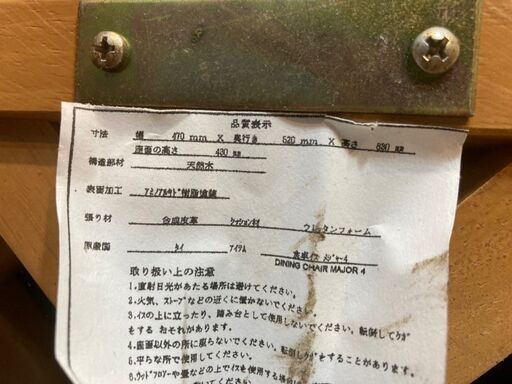 品質表示
寸法 幅 470 mm X 奥行き 520 mm X 高さ 830 mm
座面の高さ 430 mm
構造部材 天然木
表面加工 アミノアルキド樹脂塗装
張り材 合成皮革 クッション材 ウレタンフォーム
原産国 タイ アイテム 食卓イス メジャー4
DINING CHAIR MAJOR 4
取り扱い上の注意
1.直射日光があたる場所は避けてください。
2.火気、ストーブなどの近くに置かないでください。
3.イスの上に立ったり、踏み台として使用しないでください。転倒してケガ
をする おそれがあります。
4.座面以外の所に座らないでください。転倒しケガをすることがあります。
5.平らな所で使用してください。
6.ウッドフロアーや畳などの上でイスを使用する場合は